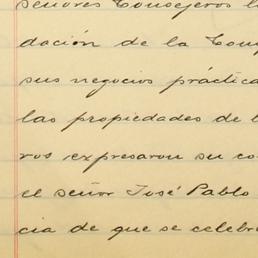 señores Consejeros l
dación de la Com
sus negocios práctica
las propiedades de l
ros expresaron su co
el señor José Pablo
cia de que se celebr